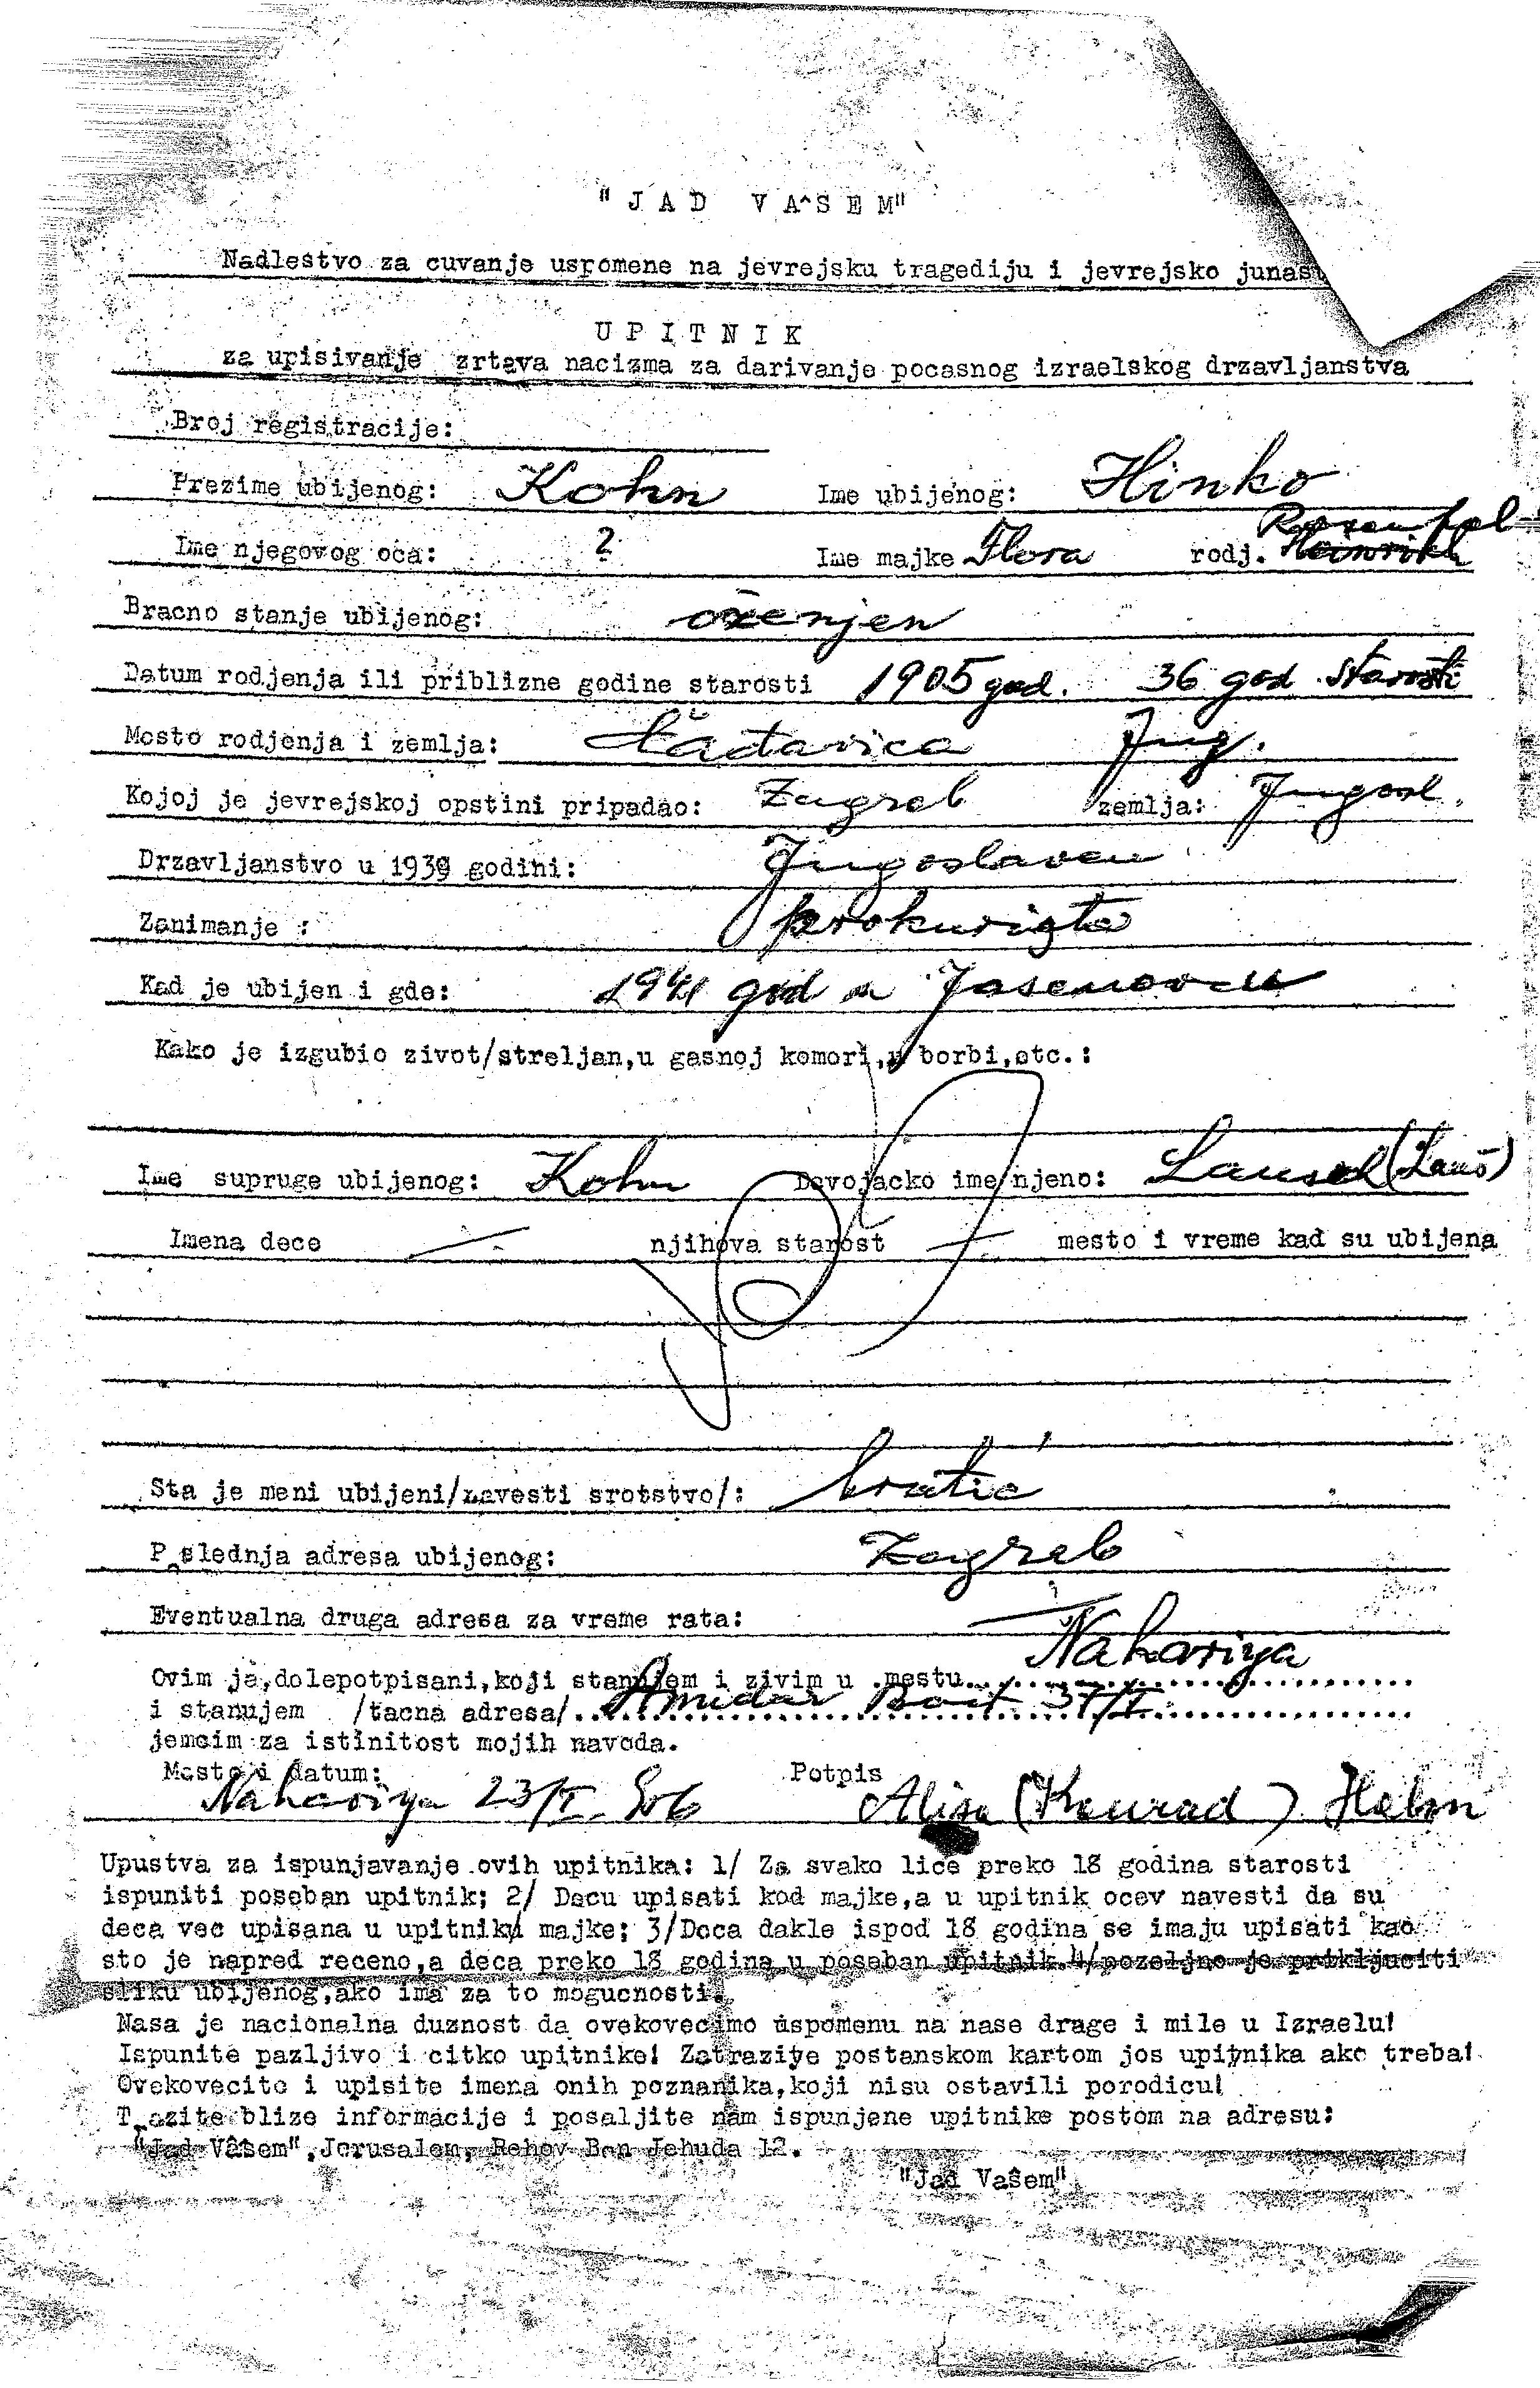 "JAD VA^SEM"
Nadlestvo za cuvanje uspomene na jevrejsku tragediju i jevrejsko junast
UPITNIK
za upisivanje zrtava nacizma za darivanje pocasnog izraelskog drzavljanstva
Broj registracije:
Prezime ubijenog: Kohn Ime ubijenog: Hinko
Ime njegovog oca: ? Ime majke Flora rodj.
Bracno stanje ubijenog: oženjen
Datum rodjenja ili priblizne godine starosti 1905 god. 36 god starosti
Mesto rodjenja i zemlja: Čađavica Jug.
Kojoj je jevrejskoj opstini pripadao: Zagreb zemlja: Jugosl.
Drzavljanstvo u 1939 godini: Jugoslaven
Zanimanje : prokurista
Kad je ubijen i gde: 1941 god u Jasenovcu
Kako je izgubio zivot/streljan,u gasnoj komori,u borbi,etc.:
Ime supruge ubijenog: Kohn Devojacko ime njeno: (Lauš)
Imena dece — njihova starost — mesto i vreme kad su ubijena
Sta je meni ubijeni/navesti srotstvo/: bratić
P slednja adresa ubijenog: Zagreb
Eventualna druga adresa za vreme rata: —
Nahariya
Ovim ja,dolepotpisani,koji stanujem i zivim u mestu..............................
i stanujem /tacna adresa/ Amidar 37/I
jemcim za istinitost mojih navoda.
Mesto i datum: Potpis
Nahariya 23/I. Alisa (Konrad) Helm
Upustva za ispunjavanje ovih upitnika: 1/ Za svako lice preko 18 godina starosti
ispuniti poseban upitnik; 2/ Decu upisati kod majke,a u upitnik ocev navesti da su
deca vec upisana u upitniku majke; 3/Deca dakle ispod 18 godina se imaju upisati kao
sto je napred receno,a deca preko 18 godina u poseban upitnik.4/pozeljno je prikljuciti
sliku ubijenog,ako ima za to mogucnosti.
Nasa je nacionalna duznost da ovekovecimo uspomenu na nase drage i mile u Izraelu!
Ispunite pazljivo i citko upitnike! Zatrazite postanskom kartom jos upitnika ako treba!
Ovekovecite i upisite imena onih poznanika,koji nisu ostavili porodicu!
T azite blize informacije i posaljite nam ispunjene upitnike postom na adresu:
"Jad Vâsem",Jerusalem, Rehov Ben Jehuda 12.
"Jad Vaŝem"